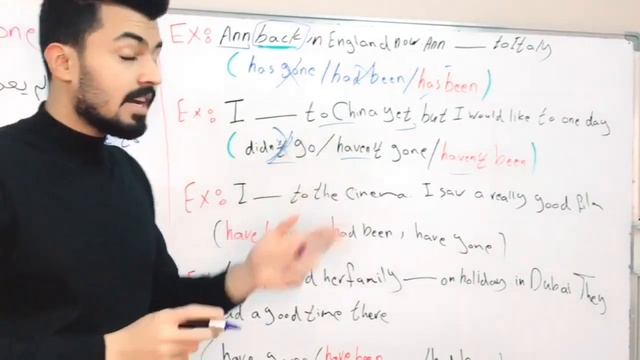 one
EX: Ann back in England now Ann — to Italy
(has gone / had been / has been)
EX: I — to China yet, but I would like to one day
(didn't go / haven't gone / haven't been)
EX: I — to the cinema. I saw a really good film
(have had been, have gone)
her family — on holiday in Dubai They
a good time there
(have have been